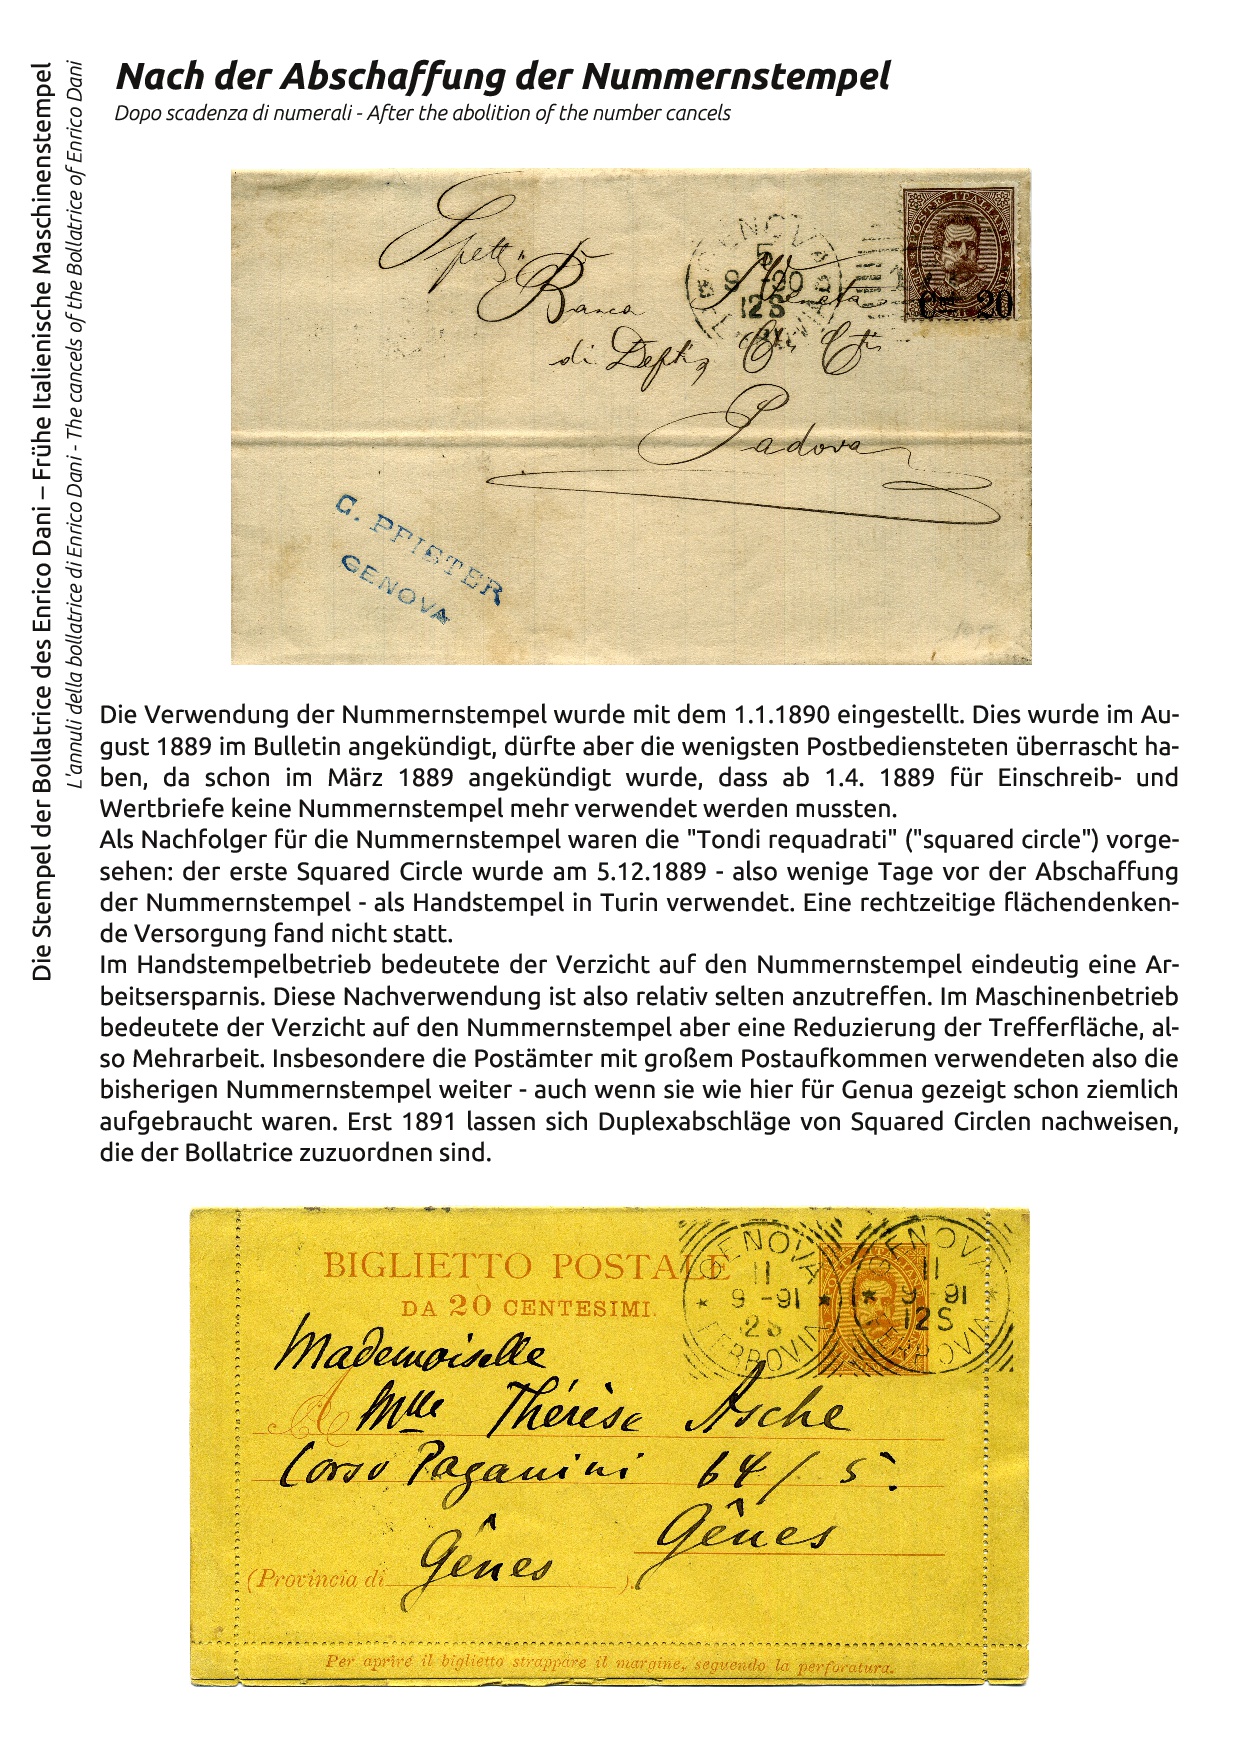 Die Stempel der Bollatrice des Enrico Dani – Frühe Italienische Maschinenstempel
L'annuli della bollatrice di Enrico Dani - The cancels of the Bollatrice of Enrico Dani
Nach der Abschaffung der Nummernstempel
Dopo scadenza di numerali - After the abolition of the number cancels
POSTE ITALIANE
Cmi 20
GENOVA
5
9 - 90
12 S
Banca
Padova
C. PFISTER
GENOVA
Die Verwendung der Nummernstempel wurde mit dem 1.1.1890 eingestellt. Dies wurde im Au-
gust 1889 im Bulletin angekündigt, dürfte aber die wenigsten Postbediensteten überrascht ha-
ben, da schon im März 1889 angekündigt wurde, dass ab 1.4. 1889 für Einschreib- und
Wertbriefe keine Nummernstempel mehr verwendet werden mussten.
Als Nachfolger für die Nummernstempel waren die "Tondi requadrati" ("squared circle") vorge-
sehen: der erste Squared Circle wurde am 5.12.1889 - also wenige Tage vor der Abschaffung
der Nummernstempel - als Handstempel in Turin verwendet. Eine rechtzeitige flächendenken-
de Versorgung fand nicht statt.
Im Handstempelbetrieb bedeutete der Verzicht auf den Nummernstempel eindeutig eine Ar-
beitsersparnis. Diese Nachverwendung ist also relativ selten anzutreffen. Im Maschinenbetrieb
bedeutete der Verzicht auf den Nummernstempel aber eine Reduzierung der Trefferfläche, al-
so Mehrarbeit. Insbesondere die Postämter mit großem Postaufkommen verwendeten also die
bisherigen Nummernstempel weiter - auch wenn sie wie hier für Genua gezeigt schon ziemlich
aufgebraucht waren. Erst 1891 lassen sich Duplexabschläge von Squared Circlen nachweisen,
die der Bollatrice zuzuordnen sind.
BIGLIETTO POSTALE
DA 20 CENTESIMI.
GENOVA
11
9 - 91
2 S
FERROVIA
GENOVA
11
9 - 91
12 S
FERROVIA
Mademoiselle
A Mlle Thérèse Asche
Corso Paganini 64/5.
Gênes
(Provincia di Gênes ).
Per aprire il biglietto strappare il margine, seguendo la perforatura.